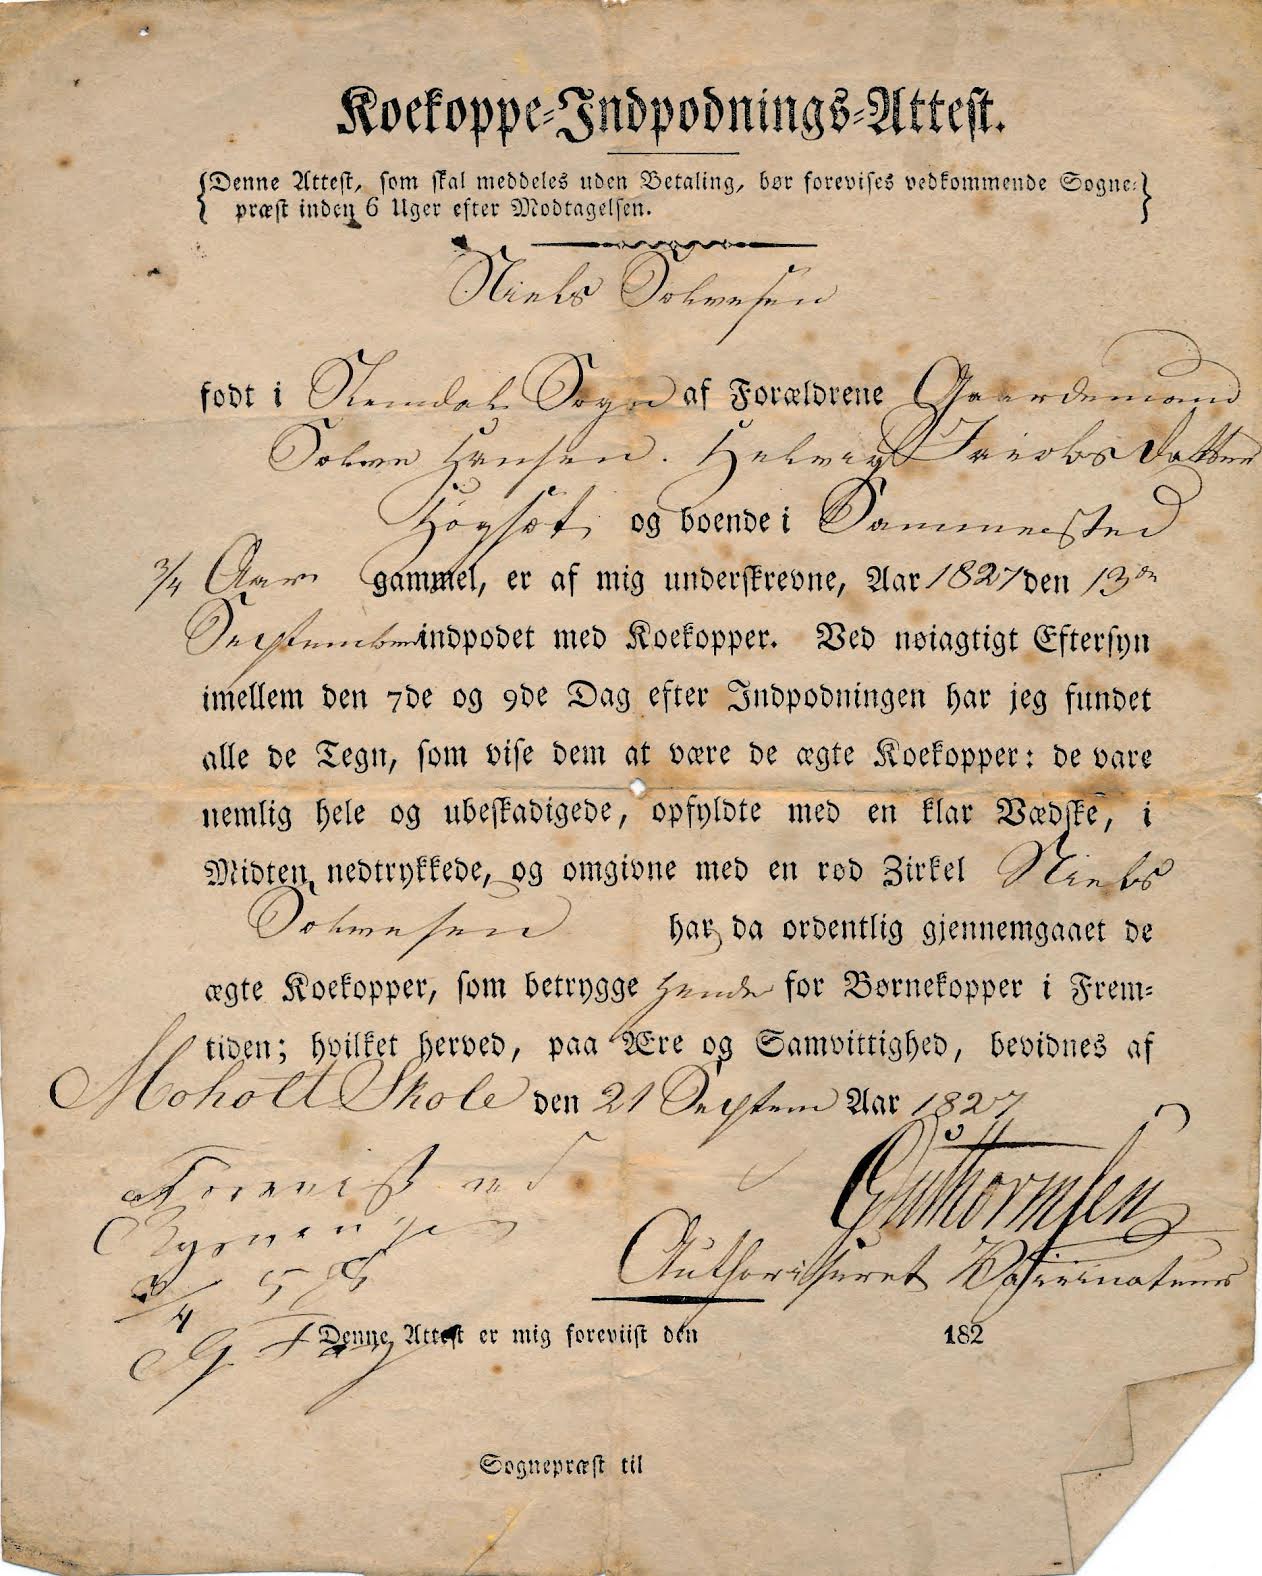 Koekoppe-Indpodnings-Attest.
Denne Attest, som skal meddeles uden Betaling, bør forevises vedkommende Sogne-
præst inden 6 Uger efter Modtagelsen.
Niels Solvesen
født i Slemdal Sogn af Forældrene Gaardemand
Solve Hansen. Helvig Jacobsdatter
Høysæt og boende i Sammested
3/4 Aar gammel, er af mig underskrevne, Aar 1827 den 13de
September indpodet med Koekopper. Ved nøiagtigt Eftersyn
imellem den 7de og 9de Dag efter Indpodningen har jeg fundet
alle de Tegn, som vise dem at være de ægte Koekopper: de vare
nemlig hele og ubeskadigede, opfyldte med en klar Vædske, i
Midten nedtrykkede, og omgivne med en rød Zirkel Niels
Solvesen har da ordentlig gjennemgaaet de
ægte Koekopper, som betrygge hende for Børnekopper i Frem-
tiden; hvilket herved, paa Ære og Samvittighed, bevidnes af
Moholt Skole den 21 Septem Aar 1827
Guthormsen
Authoriseret Vaccinateur
Forevist ved
Denne Attest er mig foreviist den 182
Sognepræst til